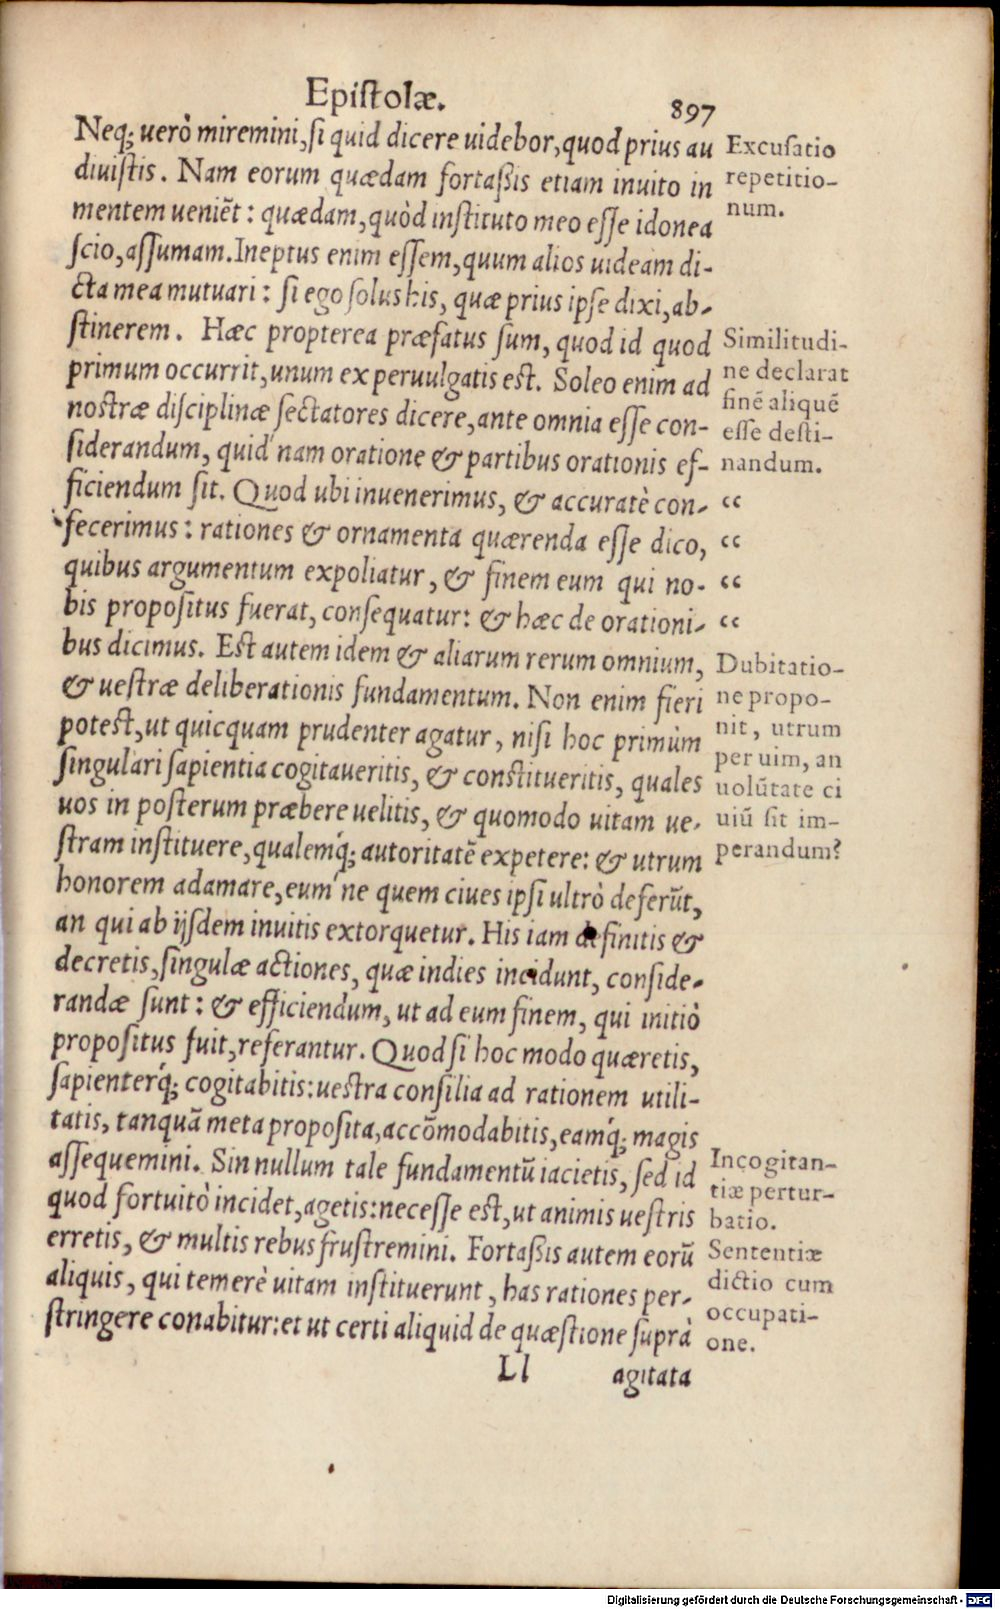 Epistolæ.
897
Neq; uerò miremini, si quid dicere uidebor, quod prius au
diuistis. Nam eorum quædam fortaßis etiam inuito in
mentem ueniēt: quædam, quòd instituto meo esse idonea
scio, assumam. Ineptus enim essem, quum alios uideam di-
cta mea mutuari: si ego solus his, quæ prius ipse dixi, ab-
stinerem. Hæc propterea præfatus sum, quod id quod
primum occurrit, unum ex peruulgatis est. Soleo enim ad
nostræ disciplinæ sectatores dicere, ante omnia esse con-
siderandum, quid'nam oratione & partibus orationis ef-
ficiendum sit. Quod ubi inuenerimus, & accuratè con-
fecerimus: rationes & ornamenta quærenda esse dico,
quibus argumentum expoliatur, & finem eum qui no-
bis propositus fuerat, consequatur: & hæc de orationi-
bus dicimus. Est autem idem & aliarum rerum omnium,
& uestræ deliberationis fundamentum. Non enim fieri
potest, ut quicquam prudenter agatur, nisi hoc primùm
singulari sapientia cogitaueritis, & constitueritis, quales
uos in posterum præbere uelitis, & quomodo uitam ue-
stram instituere, qualemq́; autoritatē expetere: & utrum
honorem adamare, eum'ne quem ciues ipsi ultrò deferūt,
an qui ab ijsdem inuitis extorquetur. His iam definitis &
decretis, singulæ actiones, quæ indies incidunt, conside-
randæ sunt: & efficiendum, ut ad eum finem, qui initiò
propositus fuit, referantur. Quod si hoc modo quæretis,
sapienterq́; cogitabitis: uestra consilia ad rationem utili-
tatis, tanquā meta proposita, accōmodabitis, eamq́; magis
assequemini. Sin nullum tale fundamentū iacietis, sed id
quod fortuitò incidet, agetis: necesse est, ut animis uestris
erretis, & multis rebus frustremini. Fortaßis autem eorū
aliquis, qui temerè uitam instituerunt, has rationes per-
stringere conabitur: et ut certi aliquid de quæstione suprà
Ll
agitata
Excusatio
repetitio-
num.
Similitudi-
ne declarat
finē aliquē
esse desti-
nandum.
“
“
“
“
Dubitatio-
ne propo-
nit, utrum
per uim, an
uolūtate ci
uiū sit im-
perandum?
Incogitan-
tiæ pertur-
batio.
Sententiæ
dictio cum
occupati-
one.
Digitalisierung gefördert durch die Deutsche Forschungsgemeinschaft - DFG